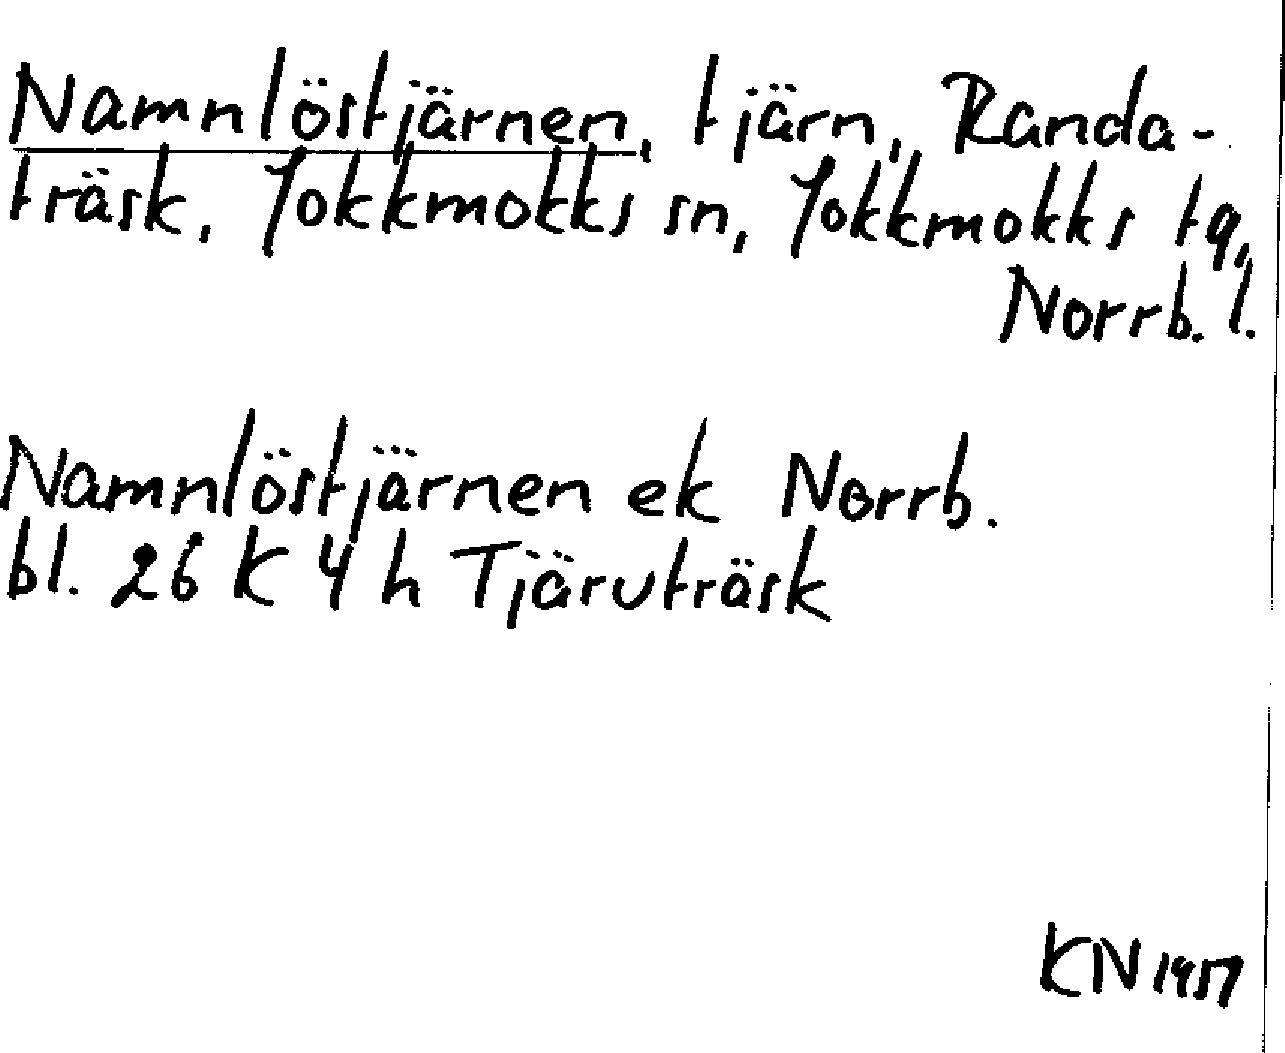 Namnlöstjärnen, tjärn, Randa-
träsk, Jokkmokks sn, Jokkmokks tg,
Norrb. l.
Namnlöstjärnen ek Norrb.
bl. 26 K 4 h Tjäruträsk
KN 1957